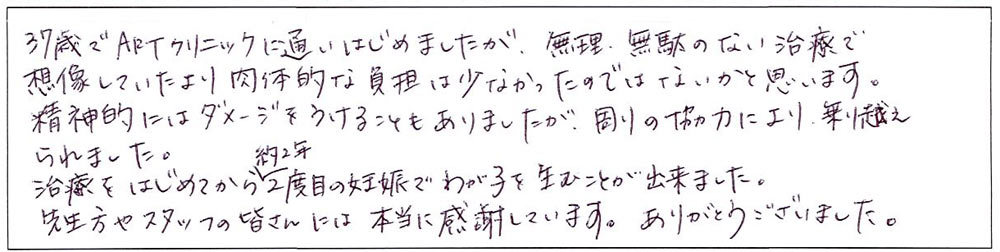 37歳でARTクリニックに通いはじめましたが、無理、無駄のない治療で
想像していたより肉体的な負担は少なかったのではないかと思います。
精神的にはダメージをうけることもありましたが、周りの協力により、乗り越え
られました。
約2年
治療をはじめてから2度目の妊娠でわが子を生むことが出来ました。
先生方やスタッフの皆さんには本当に感謝しています。ありがとうございました。